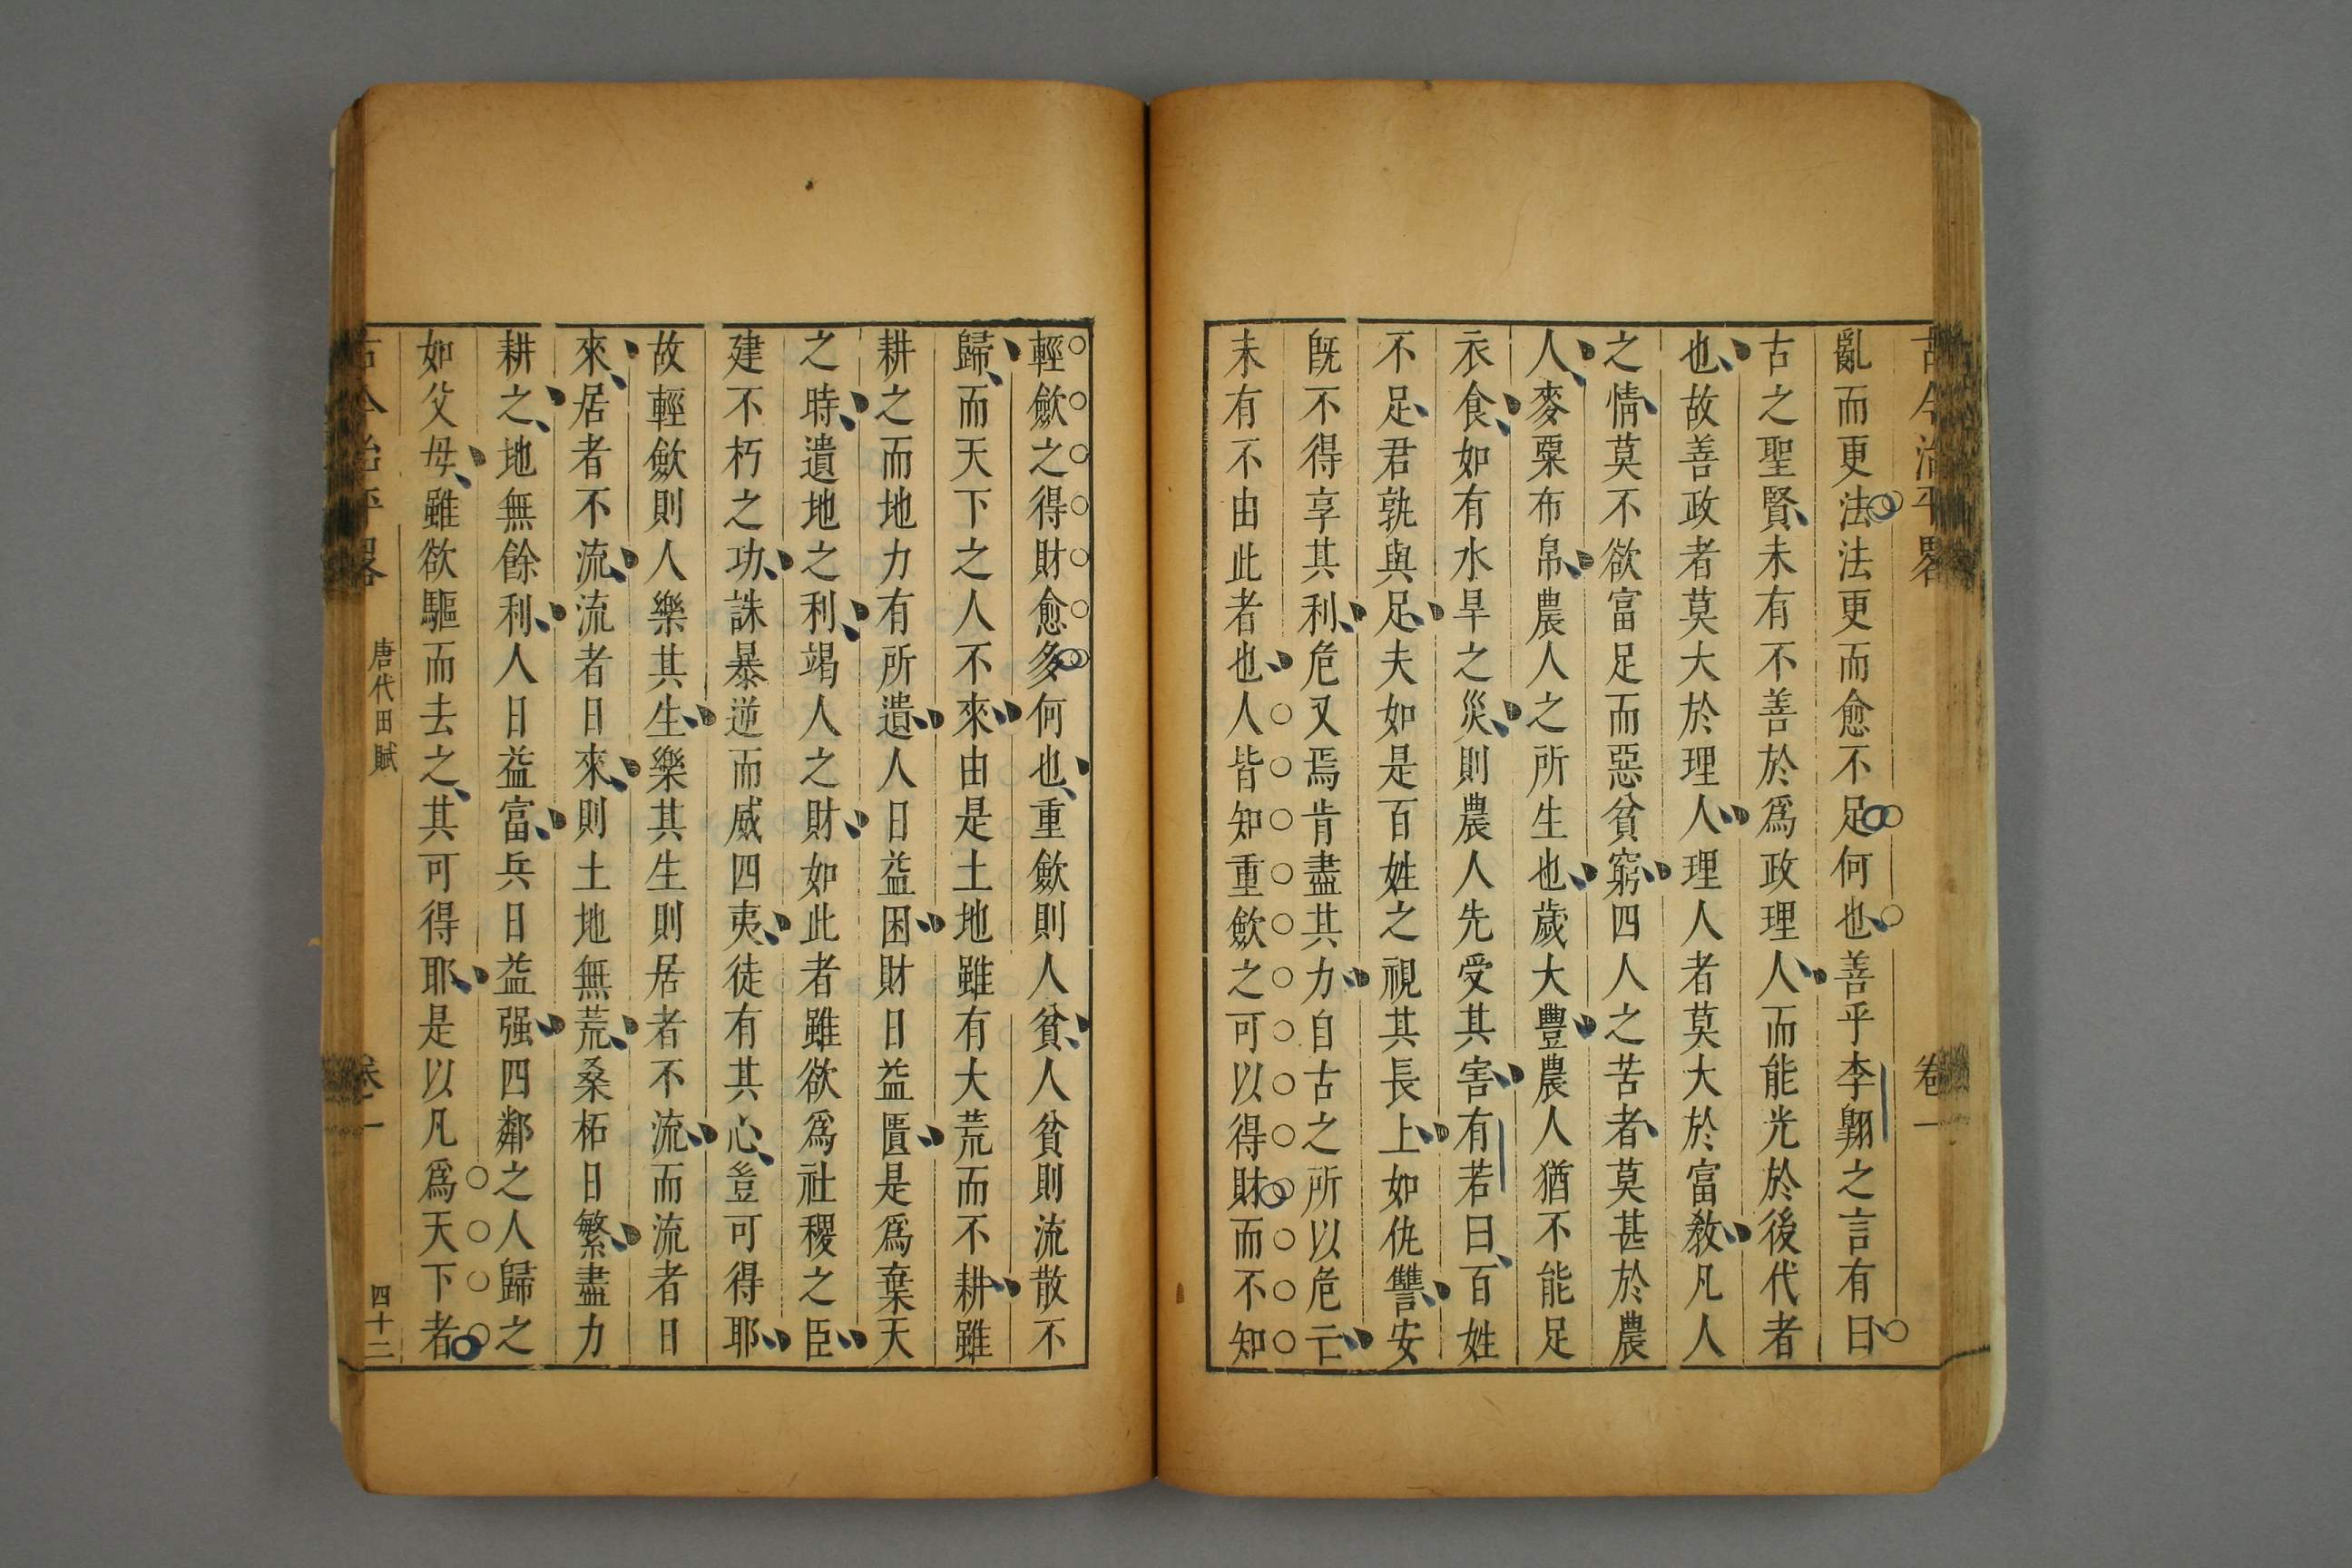 古今治平畧 卷一
亂而更法法更而愈不足何也善乎李翺之言有曰
古之聖賢未有不善於爲政理人而能光於後代者
也故善政者莫大於理人理人者莫大於富教凡人
之情莫不欲富足而惡貧窮四人之苦者莫甚於農
人麥粟布帛農人之所生也歲大豐農人猶不能足
衣食如有水旱之災則農人先受其害有若曰百姓
不足君孰與足夫如是百姓之視其長上如仇讐安
旣不得享其利危又焉肯盡其力自古之所以危亡
未有不由此者也人皆知重歛之可以得財而不知
輕歛之得財愈多何也重歛則人貧人貧則流散不
歸而天下之人不來由是土地雖有大荒而不耕雖
耕之而地力有所遺人日益困財日益匱是爲棄天
之時遺地之利竭人之財如此者雖欲爲社稷之臣
建不朽之功誅暴逆而威四夷徒有其心豈可得耶
故輕歛則人樂其生樂其生則居者不流而流者日
來居者不流流者日來則土地無荒桑柘日繁盡力
耕之地無餘利人日益富兵日益强四鄰之人歸之
如父母雖欲驅而去之其可得耶是以凡爲天下者
古今治平畧 唐代田賦 卷一 四十二